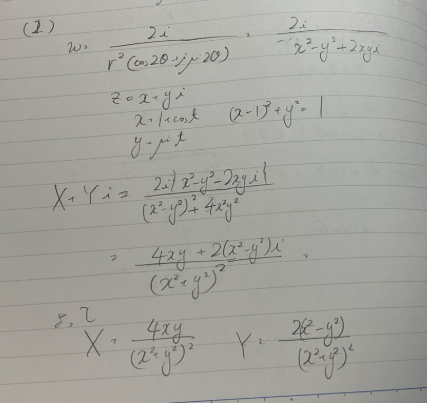 (1)
w = 2i / r²(cos2θ + i sin2θ) = 2i / x² - y² + 2xyi
z = x + yi
x = 1 + cost (x-1)² + y² = 1
y = sint
X + Yi = 2i(x² - y² - 2xyi) / (x² - y²)² + 4x²y²
= 4xy + 2(x² - y²)i / (x² + y²)²
よって
X = 4xy / (x² + y²)² Y = 2(x² - y²) / (x² + y²)²